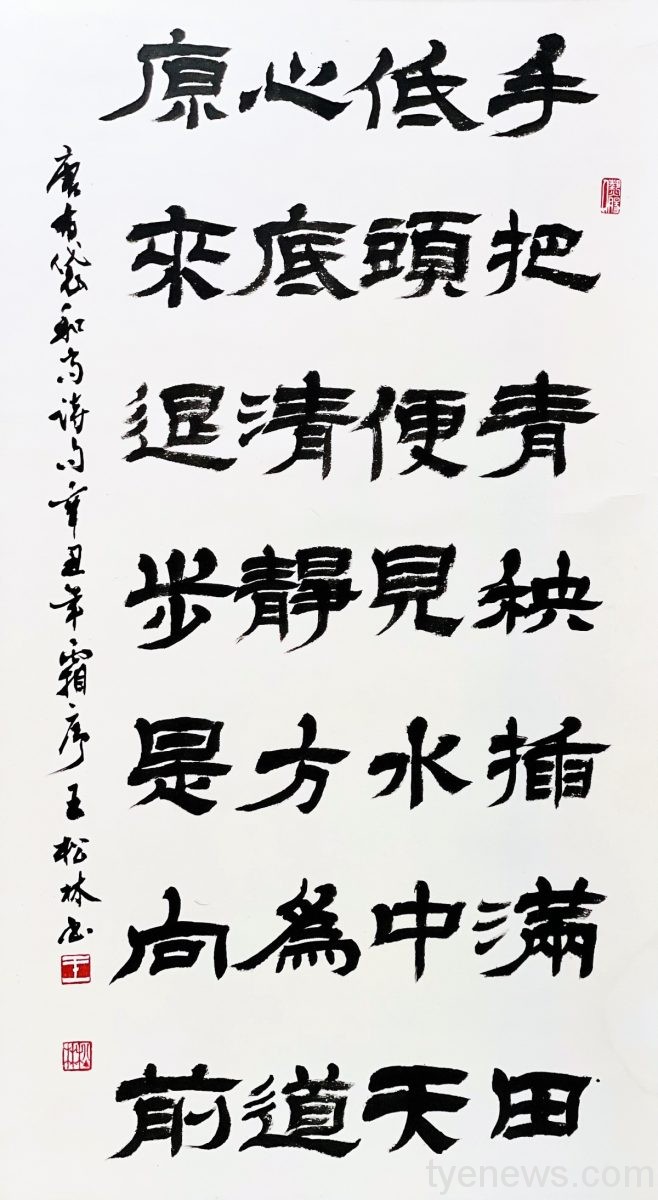 手把青秧插滿田
低頭便見水中天
心底清靜方為道
原來退步是向前
唐布袋和尚詩句辛丑年霜序王松林書
王
tyenews.com